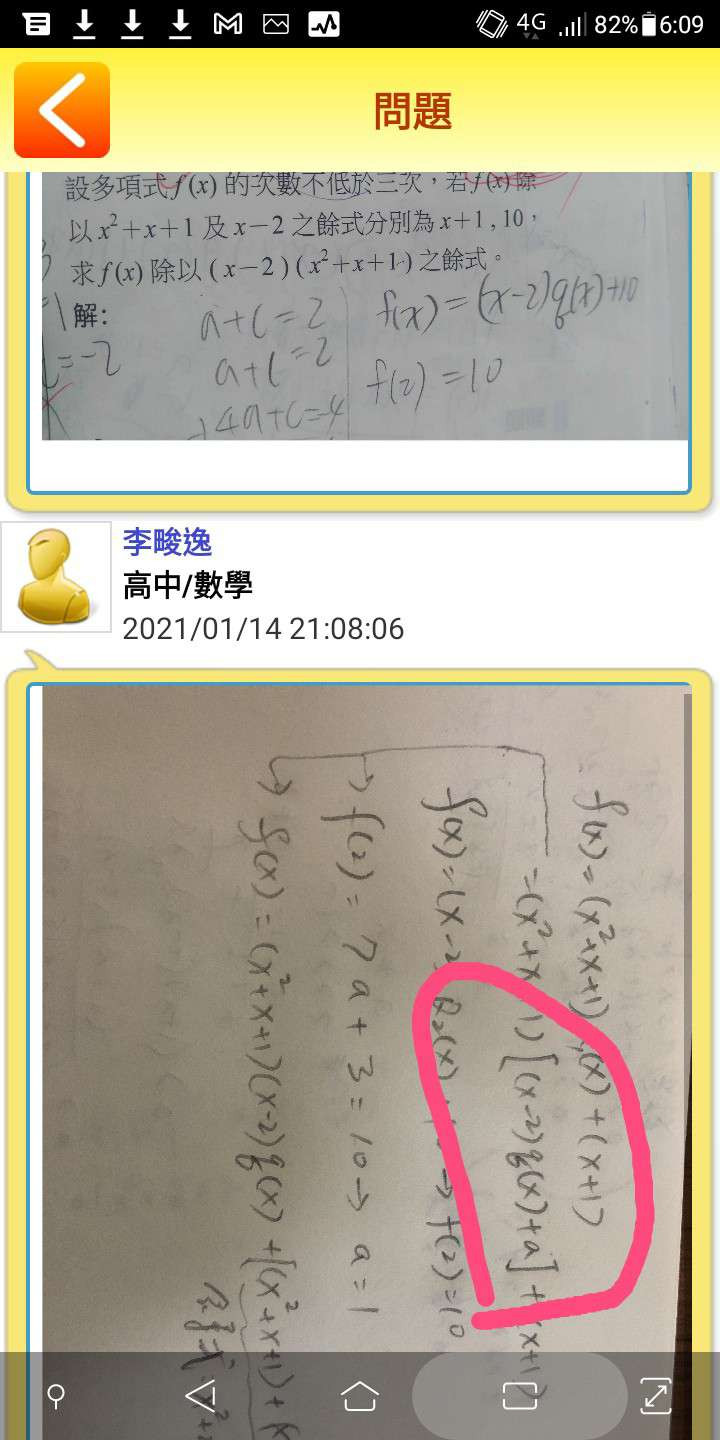 4G 82% 6:09
問題
設多項式 f(x) 的次數不低於三次，若 f(x) 除
以 x²+x+1 及 x−2 之餘式分別為 x+1 , 10，
求 f(x) 除以 (x−2)(x²+x+1) 之餘式。
解:
a+c=2
a+c=2
4a+c=-4
=-2
f(x)=(x-2)q(x)+10
f(2)=10
李畯逸
高中/數學
2021/01/14 21:08:06
f(x)=(x²+x+1) (x)+(x+1)
=(x²+x 1)[(x-2)q(x)+a]+(x+1)
f(x)=(x-2 (x) 10→f(2)=10
→f(2)=7a+3=10→a=1
→f(x)=(x²+x+1)(x-2)q(x)+[(x²+x+1)+(x
餘式 x²+